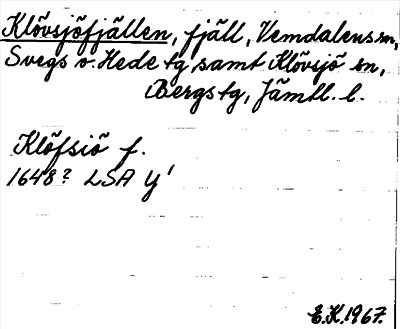 Klövsjöfjällen, fjäll, Vemdalens sn,
Svegs o. Hede tg samt Klövsjö sn,
Bergs tg, Jämtl. l.
Klöfsiö f.
1648? LSA Y¹
E.K. 1967.